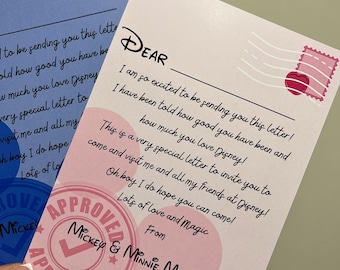 DEAR
I am so excited to be sending you this letter!
I have been told how good you have been and
how much you love Disney!
This is a very special letter to invite you to
come and visit me and all my friends at Disney!
Oh boy I do hope you can come!
Lots of love and Magic
From
Mickey & Minnie M
APPROVED
d to be sending you this l
told how good you have
w much you love Disney
very special letter to
sit me and all my
boy I do hope
Lots of l
APPROVED
Mickey